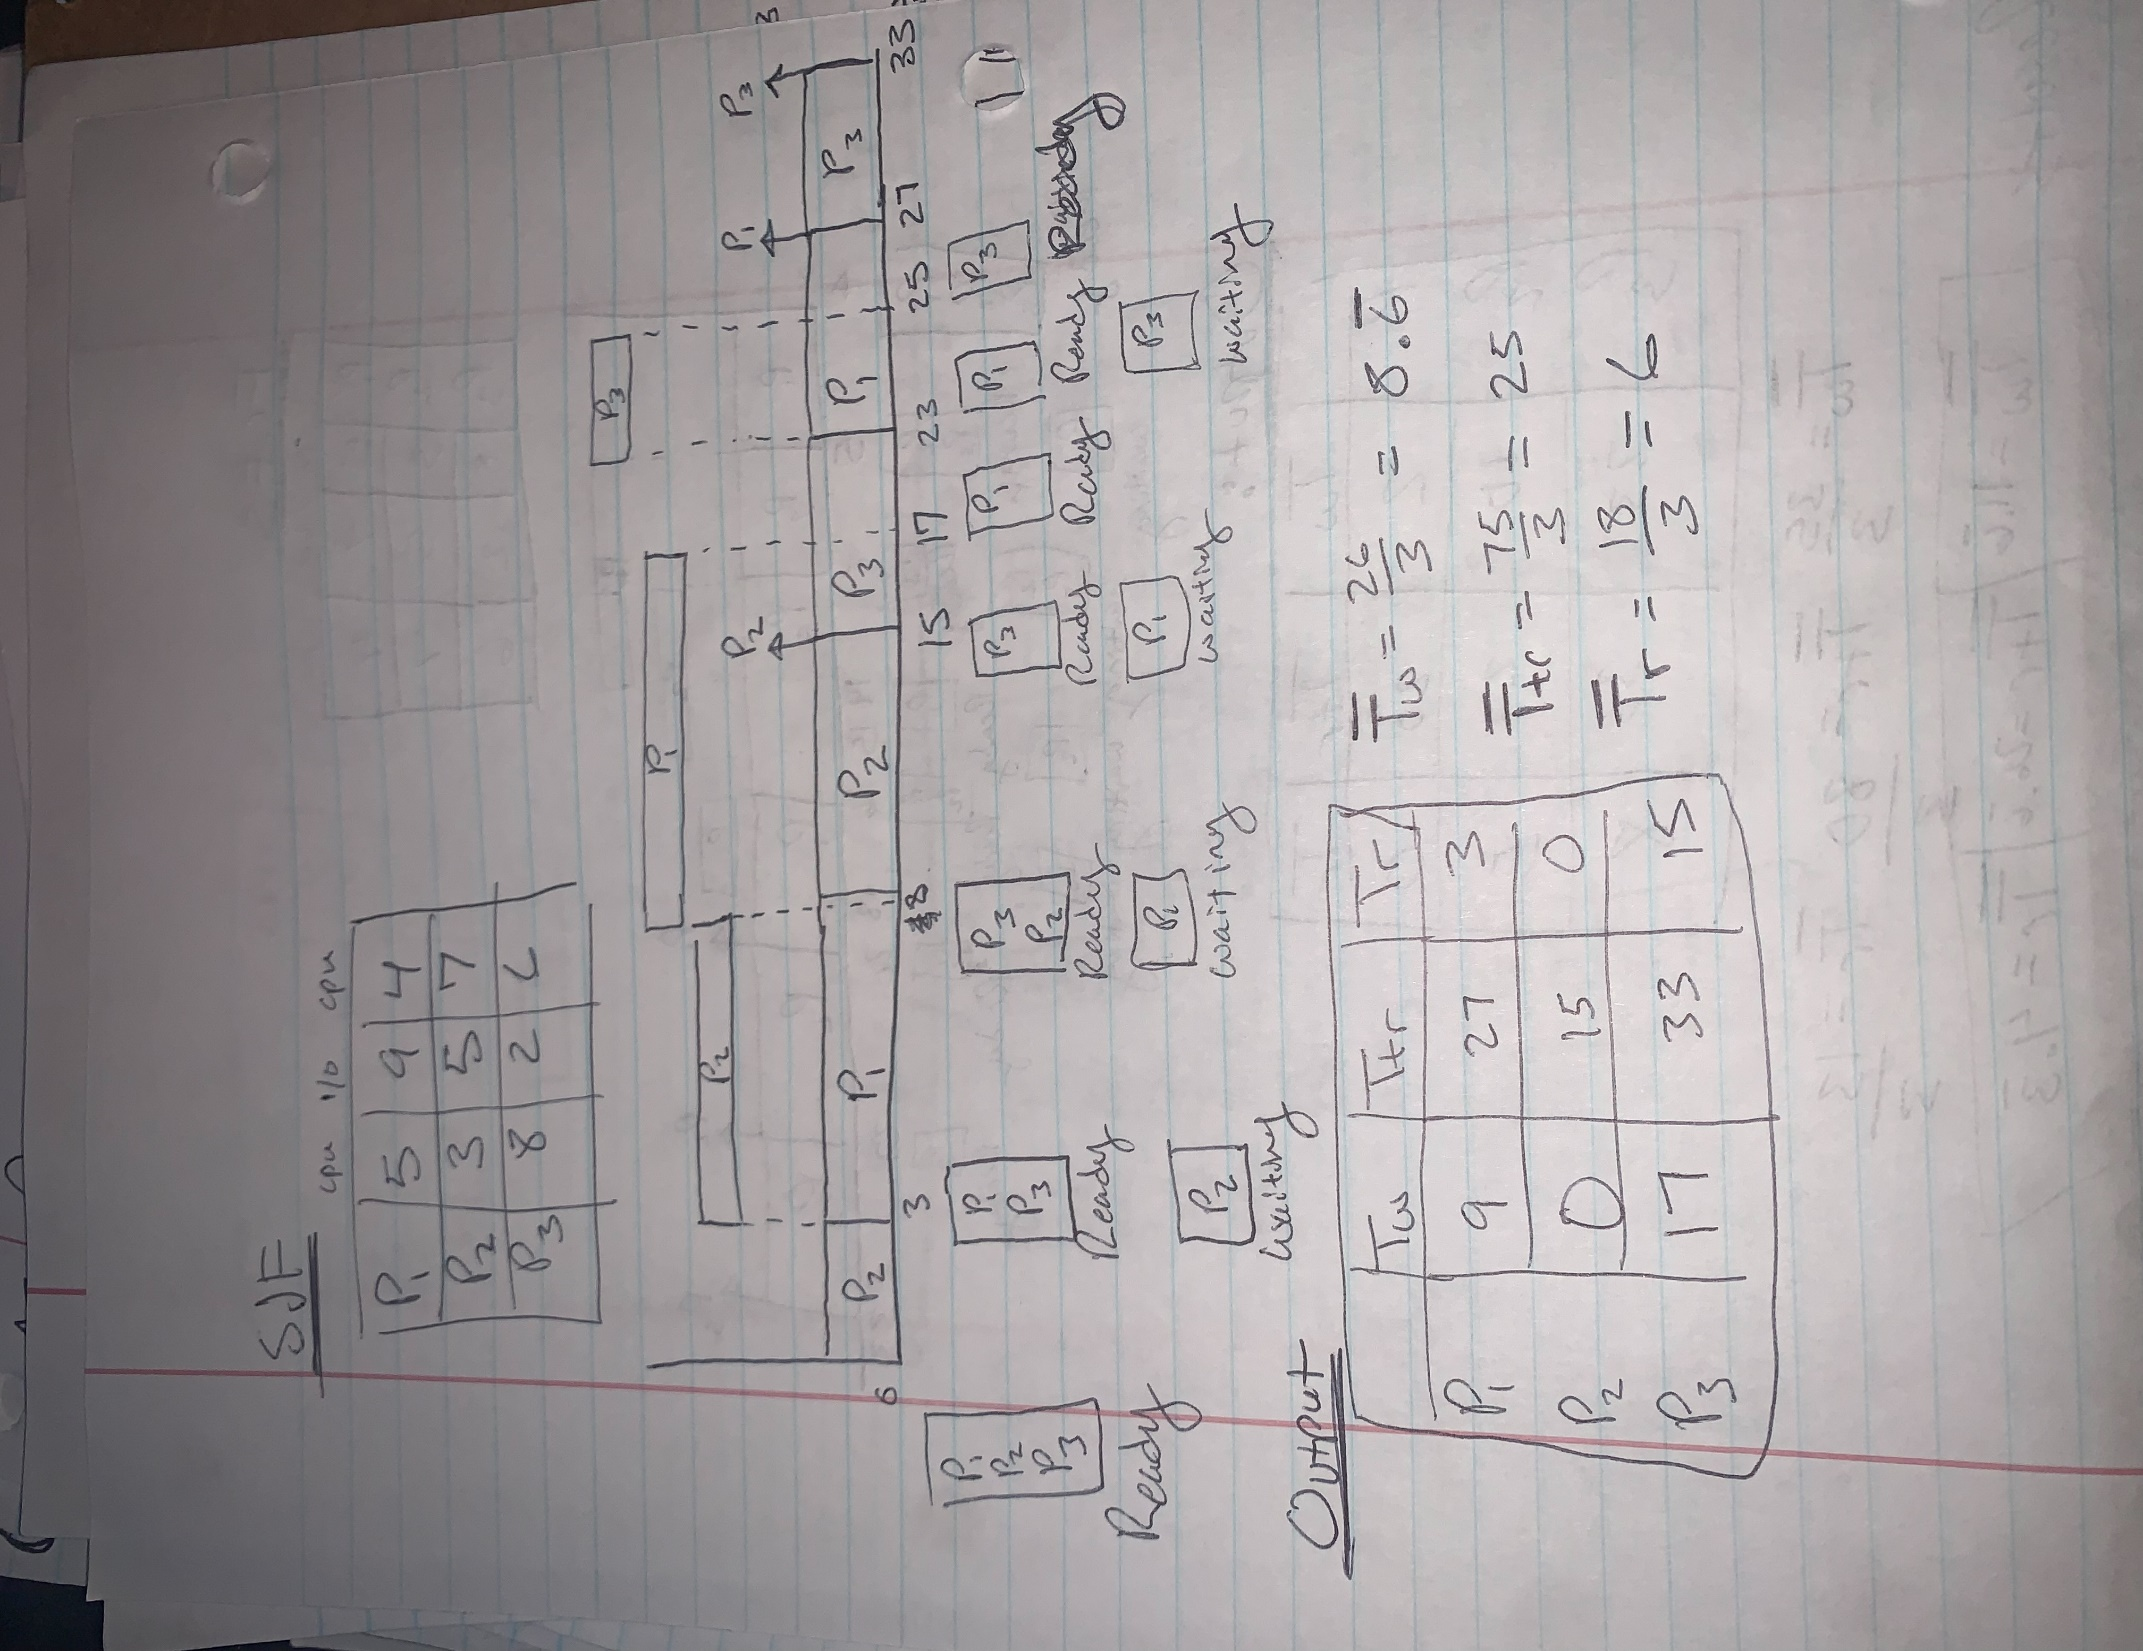 SJF
cpu i/o cpu
P1 5 9 4
P2 3 5 7
P3 8 2 6
P3
P1
P2
P2 P1 P3 P3
P2 P1 P2 P3 P1 P3
0 3 8 15 17 23 25 27 33
P1 P2 P3 Ready
P1 P3 Ready
P2 waiting
P3 P2 Ready
P1 waiting
P3 Ready
P1 waiting
P1 Ready
P1 Ready
P3 waiting
P3
Output
Tw Ttr Tr
P1 9 27 3
P2 0 15 0
P3 17 33 15
Tw = 26/3 = 8.6
Ttr = 75/3 = 25
Tr = 18/3 = 6